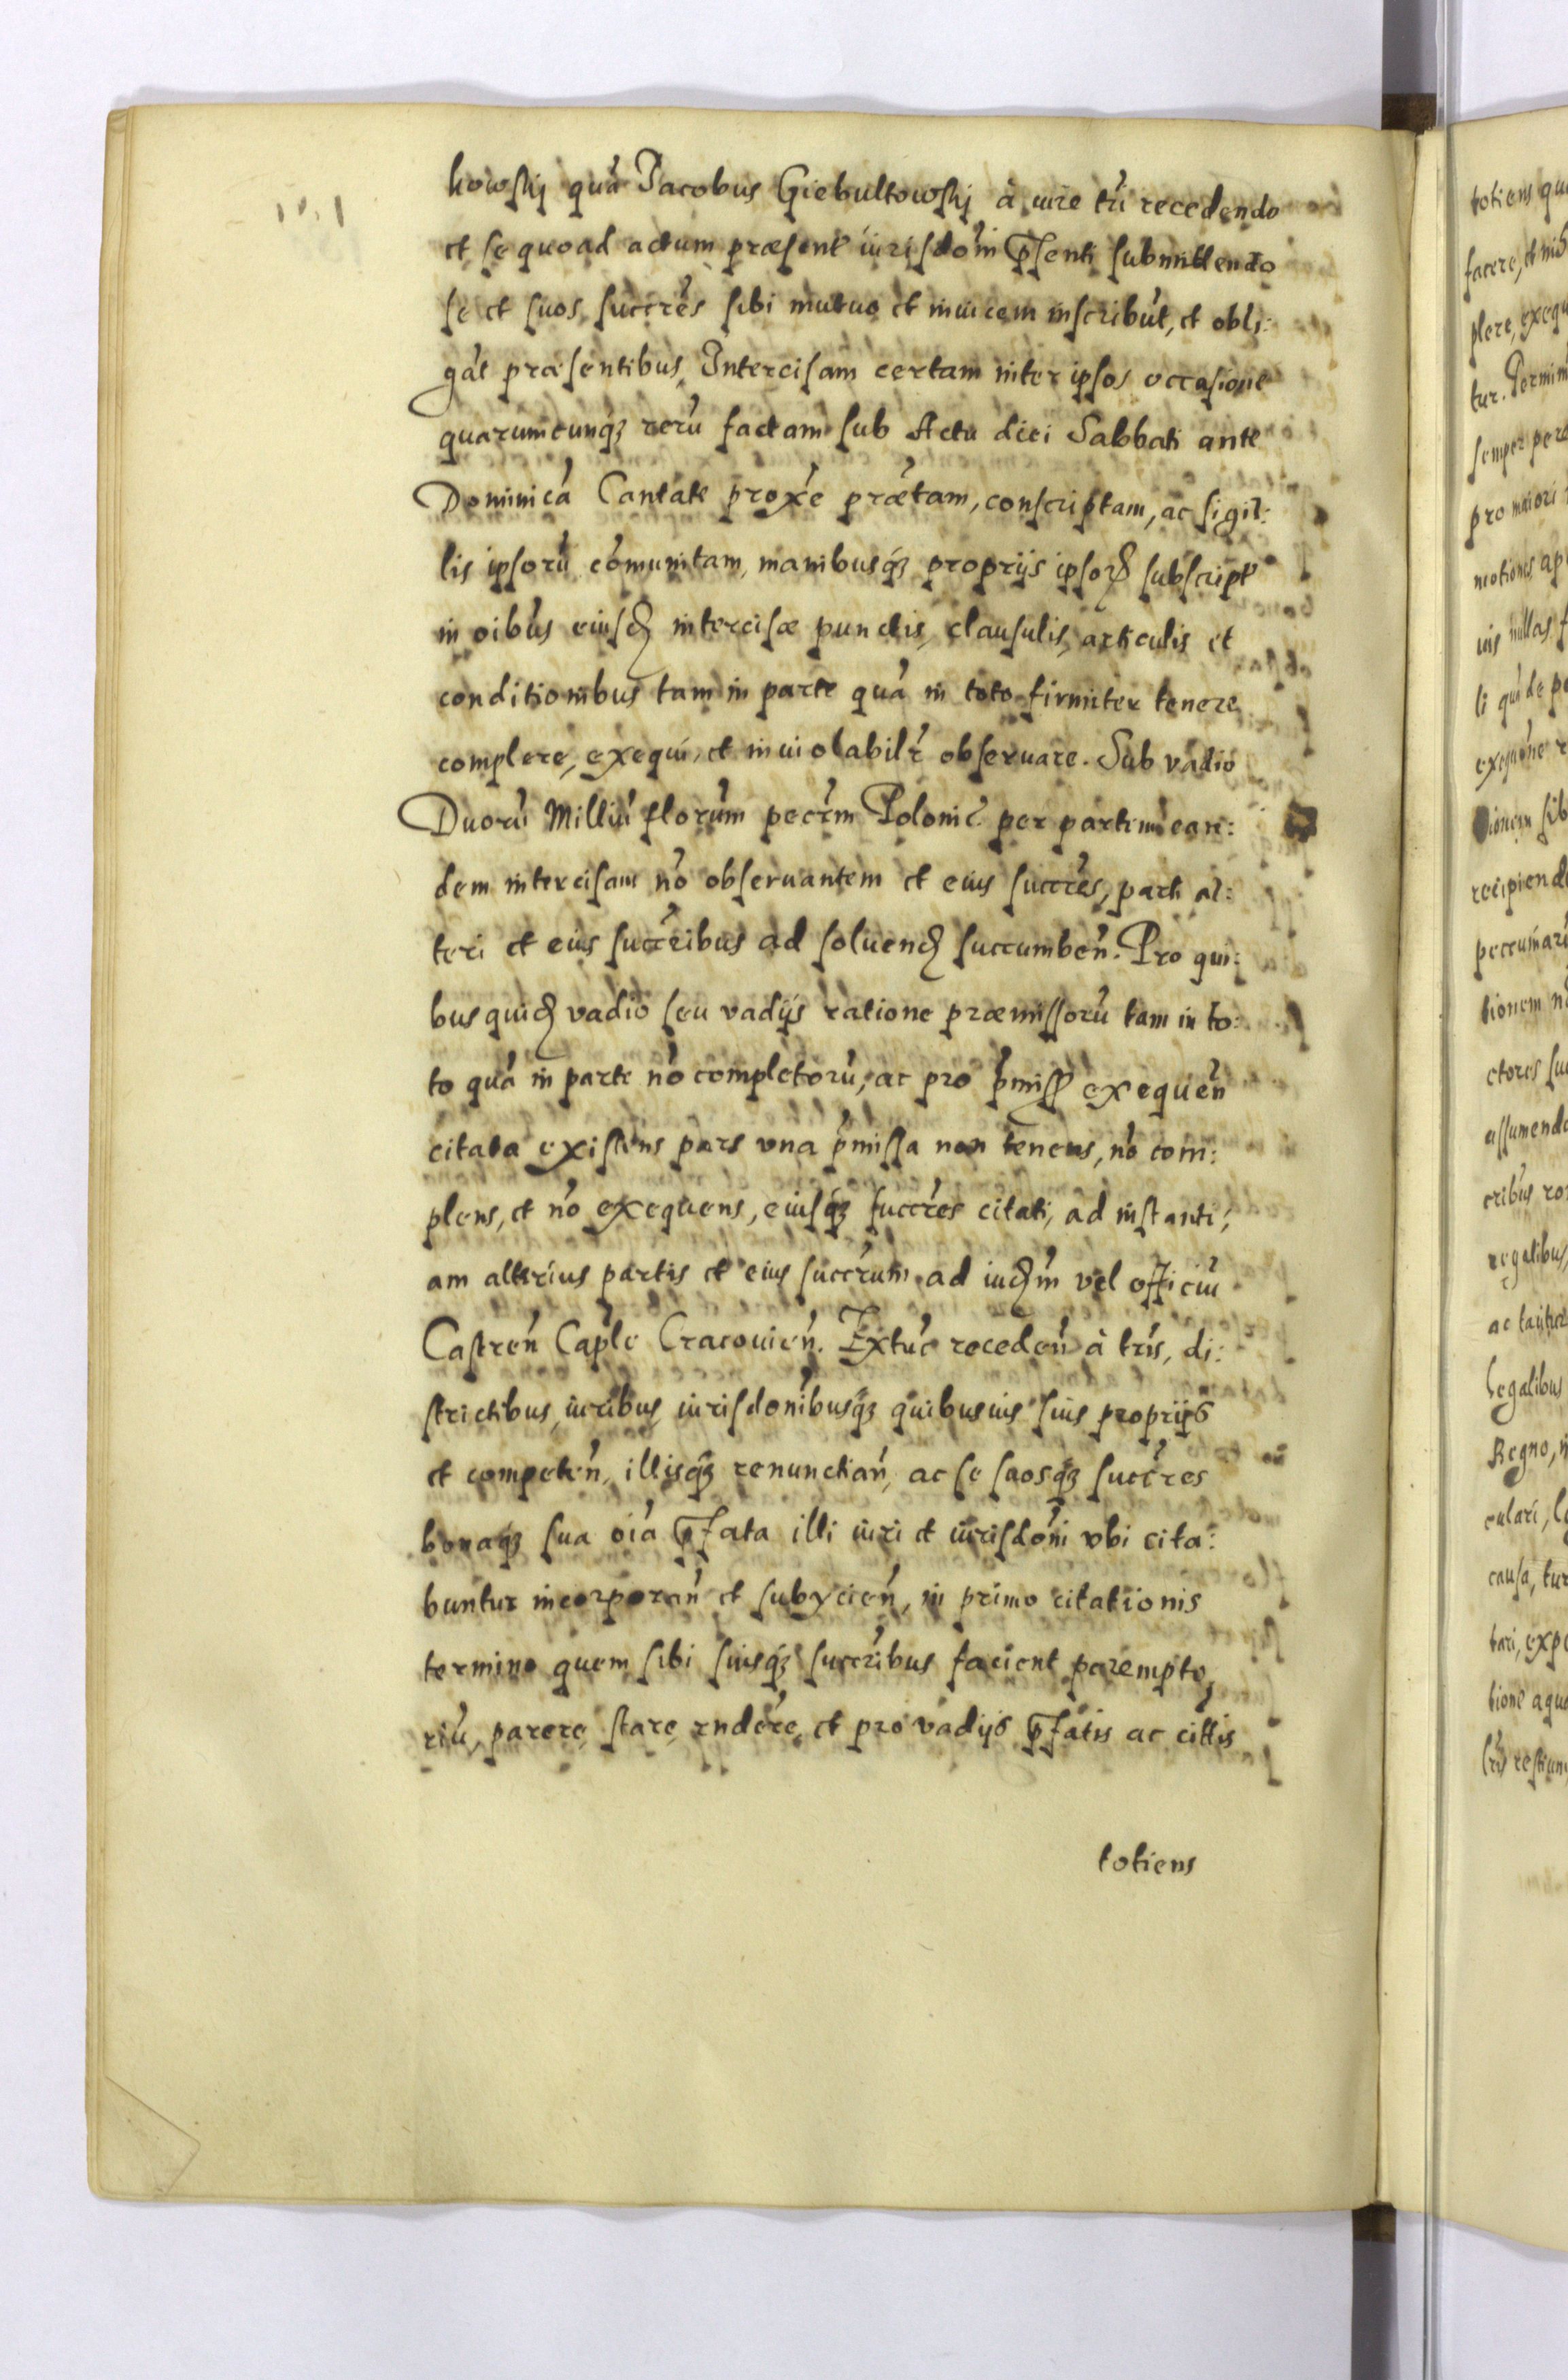 howskj quā Jacobus Giebultowskj à iure tri recedendo
et se quoad actum præsent iurisdoni pſenti submittendo
se et suos succres sibi mutuo et inuicem inscribut, et obli:
gat præsentibus, Intercisam certam inter ipsos occasione
quarumcunq; rerū factam sub Actu diei Sabbati ante
Dominicā Cantate proxe prætam, conscriptam, ac sigil:
lis ipsorū comunitam, manibusq; proprijs ipsoꝝ subscript
in oibus eiusd intercisæ punctis, clausulis, articulis et
conditionibus tam in parte quā in toto firmiter tenere
complere, exequi, et inuiolabilr obseruare. Sub vadio
Duorū Milliū florum pecrm Polonic per partem ean:
dem intercisam nō obseruantem et eius succres, parti al:
teri et eius succribus ad soluend succumben. Pro qui:
bus quid vadio seu vadijs ratione præmissorū tam in to:
to quā in parte nō completorū, ac pro pmiss exequen
citata existens pars vna pmissa non tenens, nō com:
plens, et nō exequens, eiusq; succres citati, ad instanti,
am alterius partis et eius succrum ad iudm vel officiū
Castren Caple Cracouien. Extuc receden à tris, di:
strictibus, iuribus, iurisdonibusq; quibusuis suis proprijs
et competen, illisq; renunctian, ac se suosq; succres
bonaq; sua oia pfata illi iuri et iurisdoni vbi cita:
buntur incorporan et subycien, in primo citationis
termino quem sibi suisq; succribus facient perempto,
riū, parere, stare, rndere, et pro vadijs pfatis ac cittis
totiens
totiens
facere, et
plere,
tur.
semper
pro maiori
motiones
uis nullas
li de
sib
recipiend
tionem
ctores
assumend
cribus
regalibus,
ac
legalibus
Regno,
culari,
causa,
tari,
tione